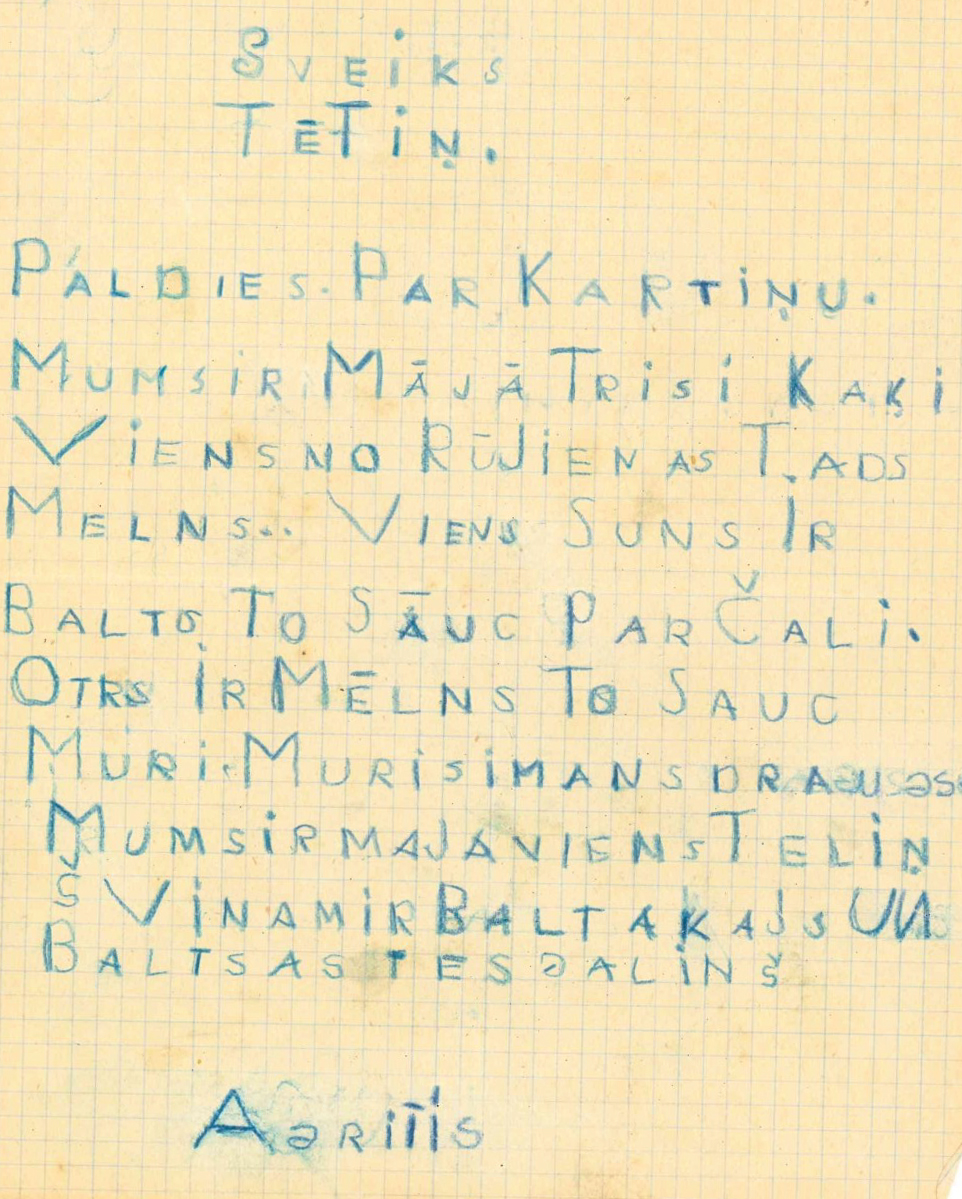 SVEIKS
TĒTIŅ.
PALDIES. PAR KARTIŅU.
MUMSIR MĀJĀ TRISI KAĶI
VIENSNO RŪJIENAS T.ADS
MELNS.. VIENS SUNS IR
BALTS TO SĀUC PAR ČALI.
OTRS IR MĒLNS TO SAUC
MURI. MURISIMANSDRAUGS
MUMSIRMAJAVIENSTELIŅ
Š VIŅAMIRBALTAKAJS UN
BALTSASTESGALINŠ